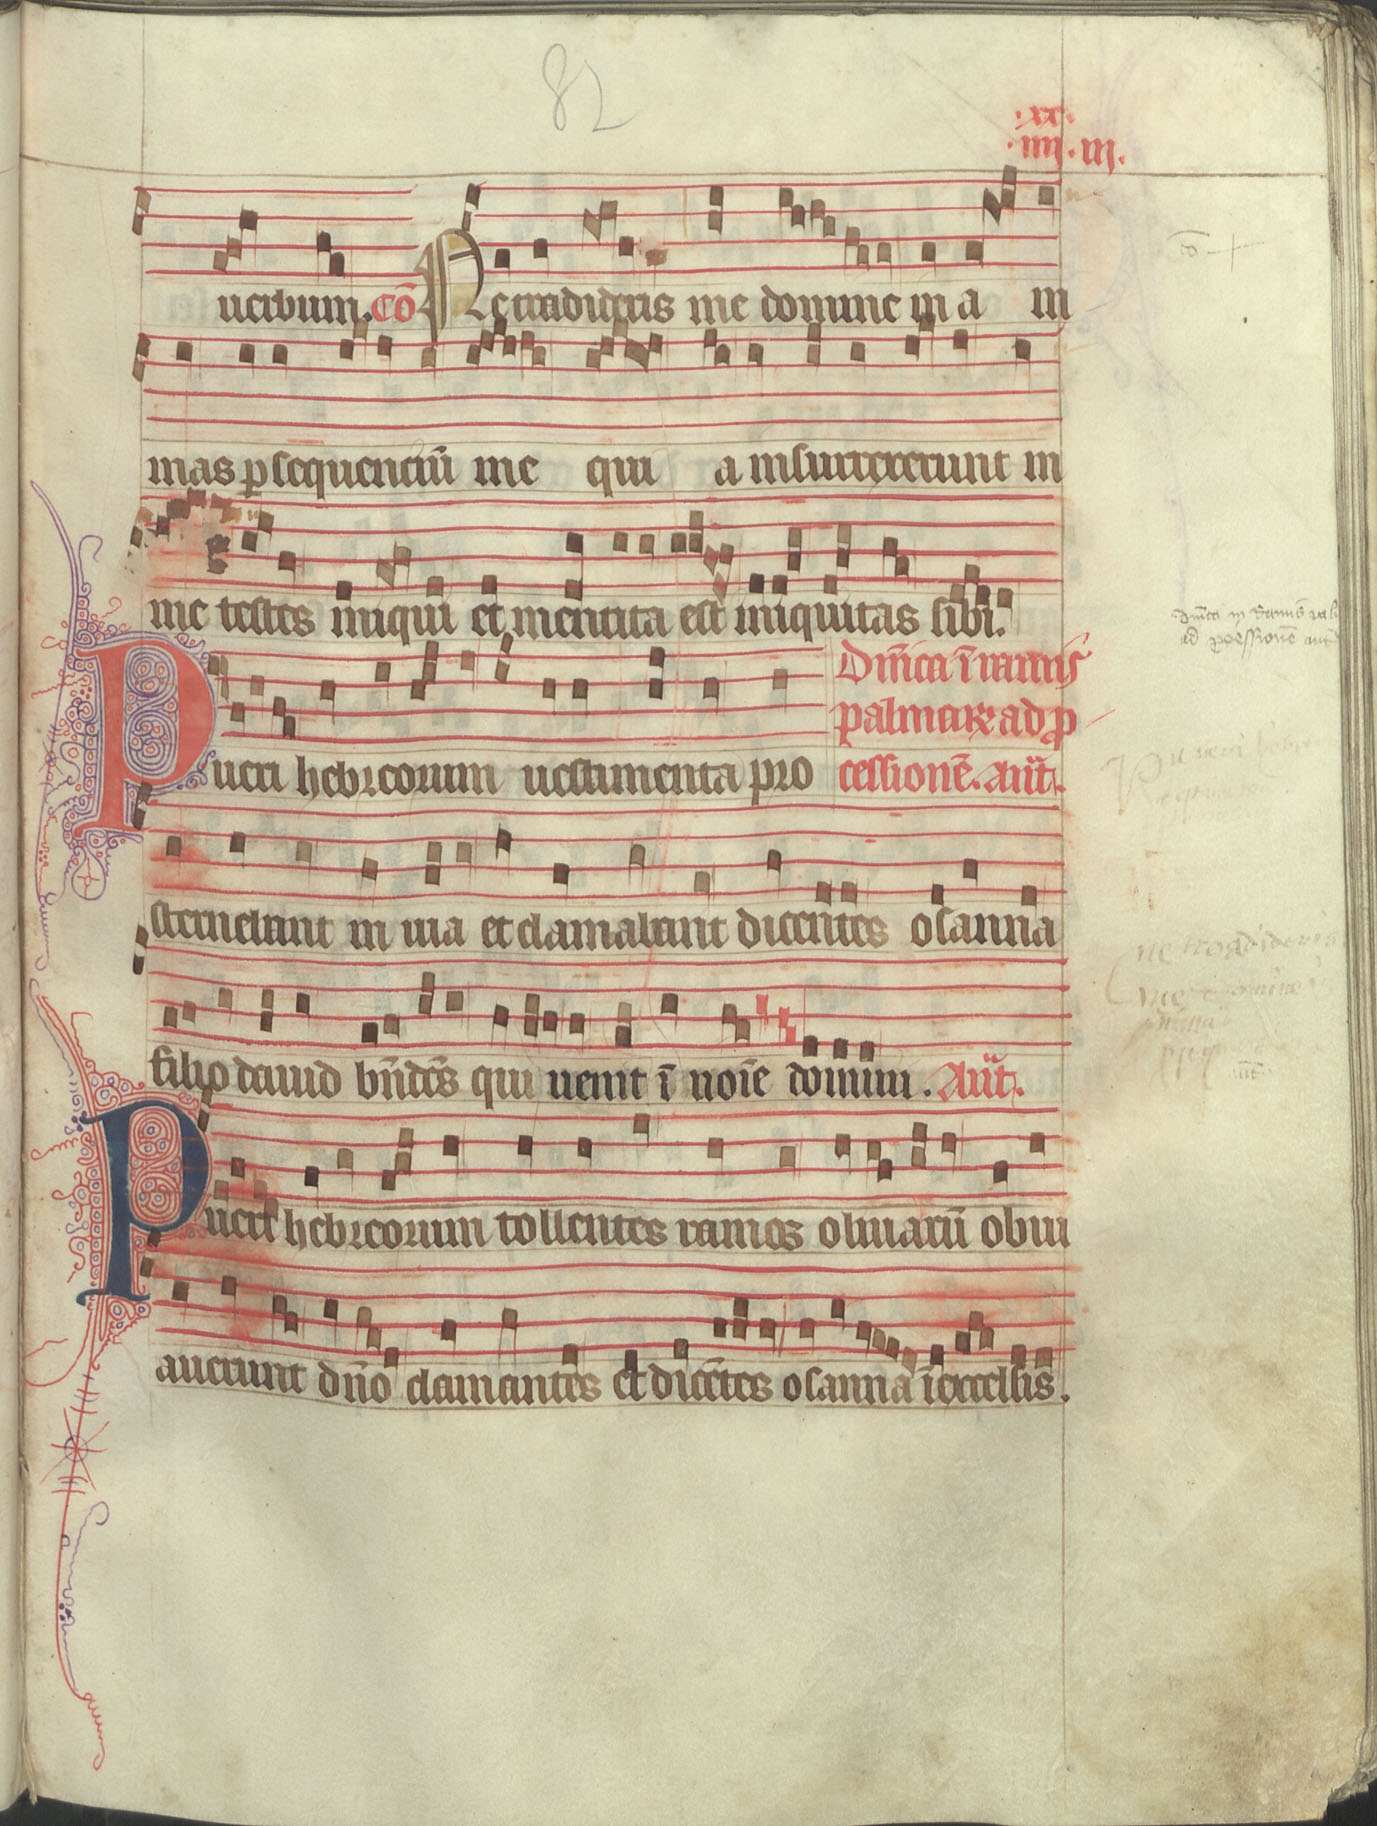 82
·xx·
·iiij· iij.
uerbum. cō Ne tradideris me domine in a in
mas psequenciū me qui a insurrexerunt in
me testes iniqui et mentita est iniquitas sibi.
Dm̄ica ī ramis
palmarꝝ ad p
Pueri hebreorum uestimenta pro cessionē. Añt.
sternebant in uia et clamabant dicentes osanna
filio dauid bn̄dc̄s qui uenit ī noīe domini. Añt.
Pueri hebreorum tollentes ramos oliuarū obui
auerunt dn̄o clamantes et dicētes osanna ī excelsis.
cō
dm̄ca in Ramis pal
ad pcessionē ant
Pueri hebreo
ne tradideris
me domine